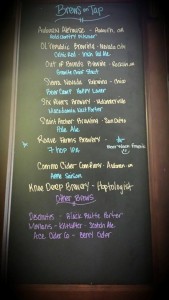 Brews on Tap
Auburn Alehouse - Auburn, CA
Gold Country Pilsner
Ol Republic Brewing - Nevada City
Celtic Red - Irish Red Ale
Out of Bounds Brewing - Rocklin, CA
Stout
Sierra Nevada Brewing - Chico
Hoppy Lager
Six Rivers Brewery - McKinleyville
Macadamia Nut Porter
Saint Archer Brewing - San Diego
Pale Ale
Farms Brewery -
7 Hop IPA
Common Cider Company - Auburn, CA
Knee Deep Brewery - Hoptologist
Other Brews
Deschutes - Black Butte Porter
Scotch Ale
Ace Cider Co - Berry Cider